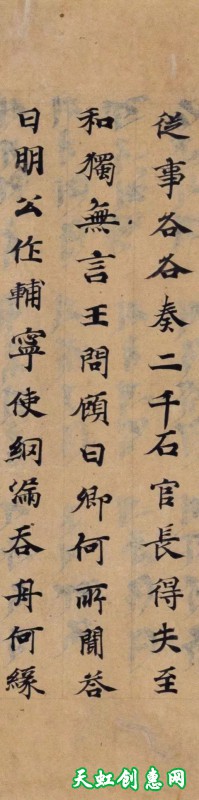 從事各各奏二千石官長得失至
和獨無言王問顧曰卿何所聞荅
曰明公作輔寧使網漏吞舟何緣
天虹创惠网